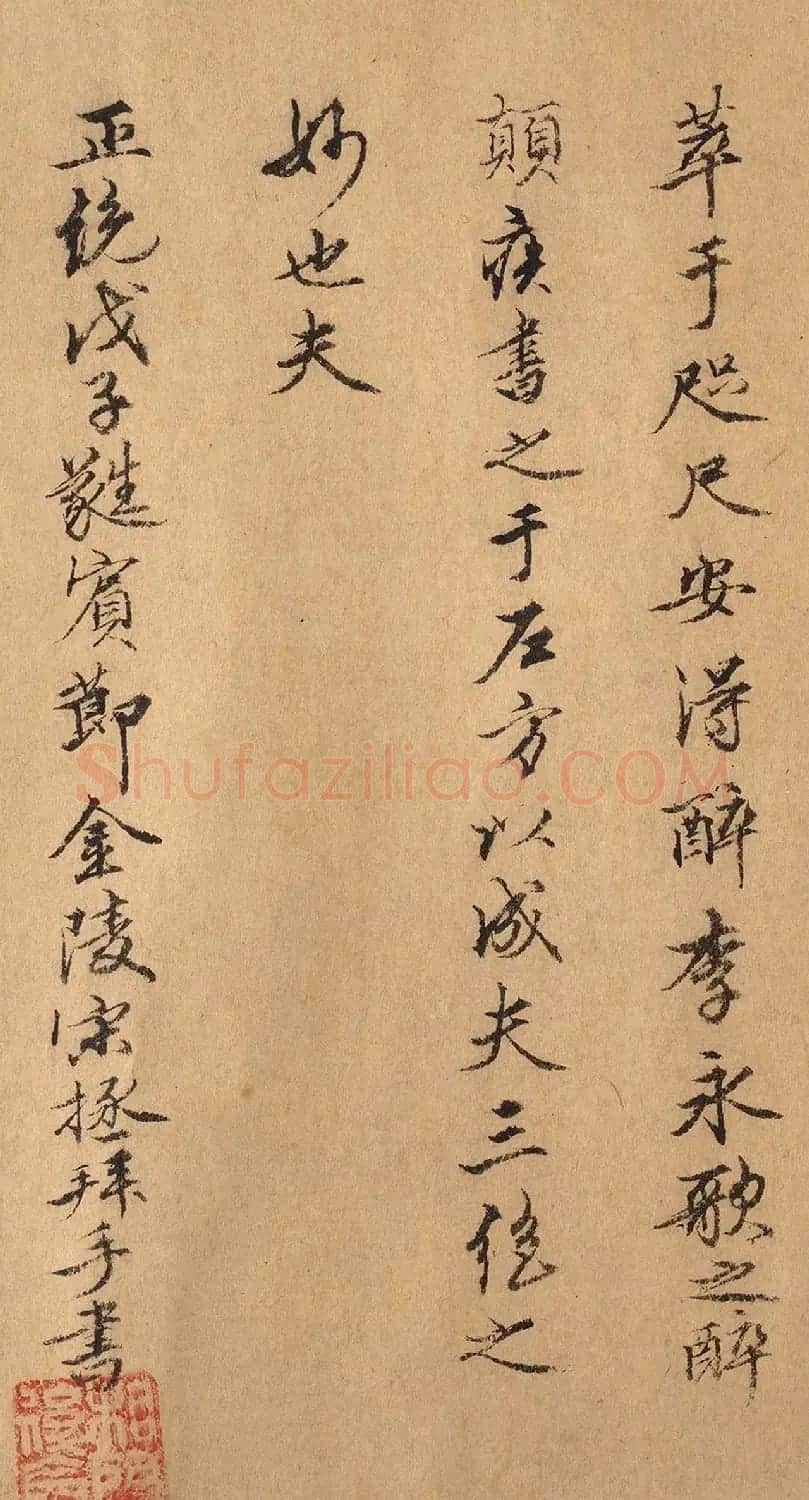 萃于咫尺安得醉李永歌之醉
顛疾書之于左方以成夫三絶之
妙也夫
正统戊子蕤賓節金陵宋拯拜手書
Shufaziliao.COM